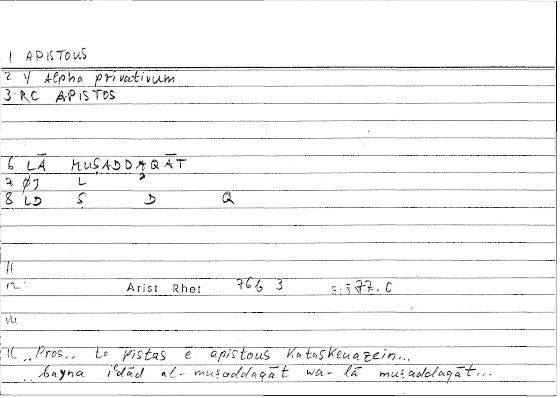 1 APISTOUS
2 Y Alpha privativum
3 RC APISTOS
6 LĀ MUṢADDAQĀT
7 ØJ L
8 LD Ṣ D Q
11
12 Arist Rhet 76b 3 77.C
16 ..Pros.. to pistas ē apistous Kataskeuazein...
..bayna iʿdād al-muṣaddaqāt wa-lā muṣaddaqāt...